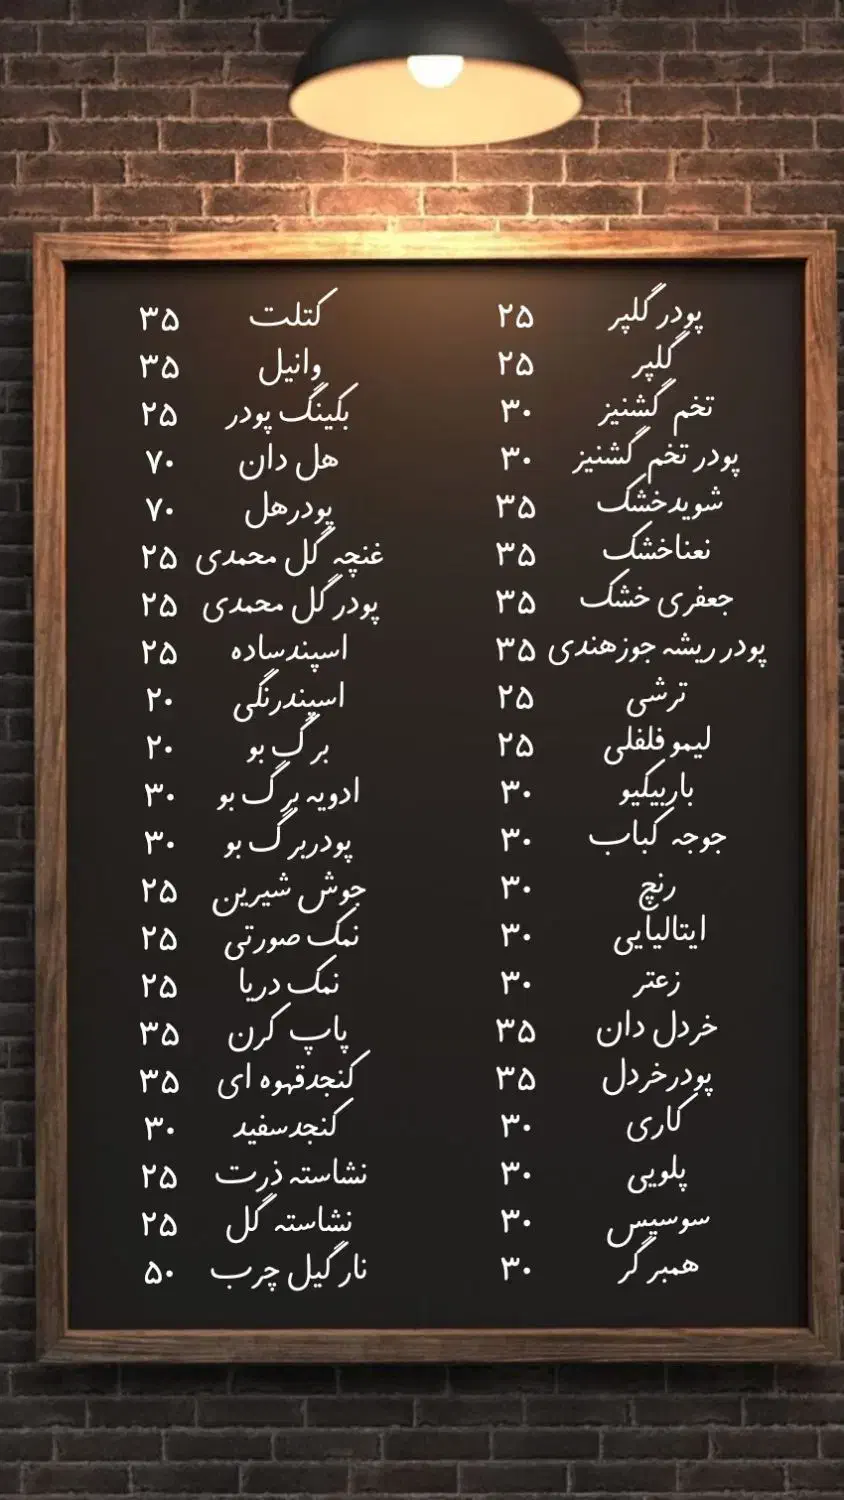 پودر گلپر ۲۵
گلپر ۲۵
تخم گشنیز ۳۰
پودر تخم گشنیز ۳۰
شویدخشک ۳۵
نعناخشک ۳۵
جعفری خشک ۳۵
پودر ریشه جوزهندی ۳۵
ترشی ۲۵
لیمو فلفلی ۲۵
باربیکیو ۳۰
جوجه کباب ۳۰
رنچ ۳۰
ایتالیایی ۳۰
زعتر ۳۰
خردل دان ۳۵
پودرخردل ۳۵
کاری ۳۰
پلویی ۳۰
سوسیس ۳۰
همبرگر ۳۰
کتلت ۳۵
وانیل ۳۵
بکینگ پودر ۲۵
هل دان ۷۰
پودرهل ۷۰
غنچه گل محمدی ۲۵
پودر گل محمدی ۲۵
اسپندساده ۲۵
اسپندرنگی ۲۰
برگ بو ۲۰
ادویه برگ بو ۳۰
پودربرگ بو ۳۰
جوش شیرین ۲۵
نمک صورتی ۲۵
نمک دریا ۲۵
پاپ کرن ۳۵
کنجدقهوه ای ۳۵
کنجدسفید ۳۰
نشاسته ذرت ۲۵
نشاسته گل ۲۵
نارگیل چرب ۵۰